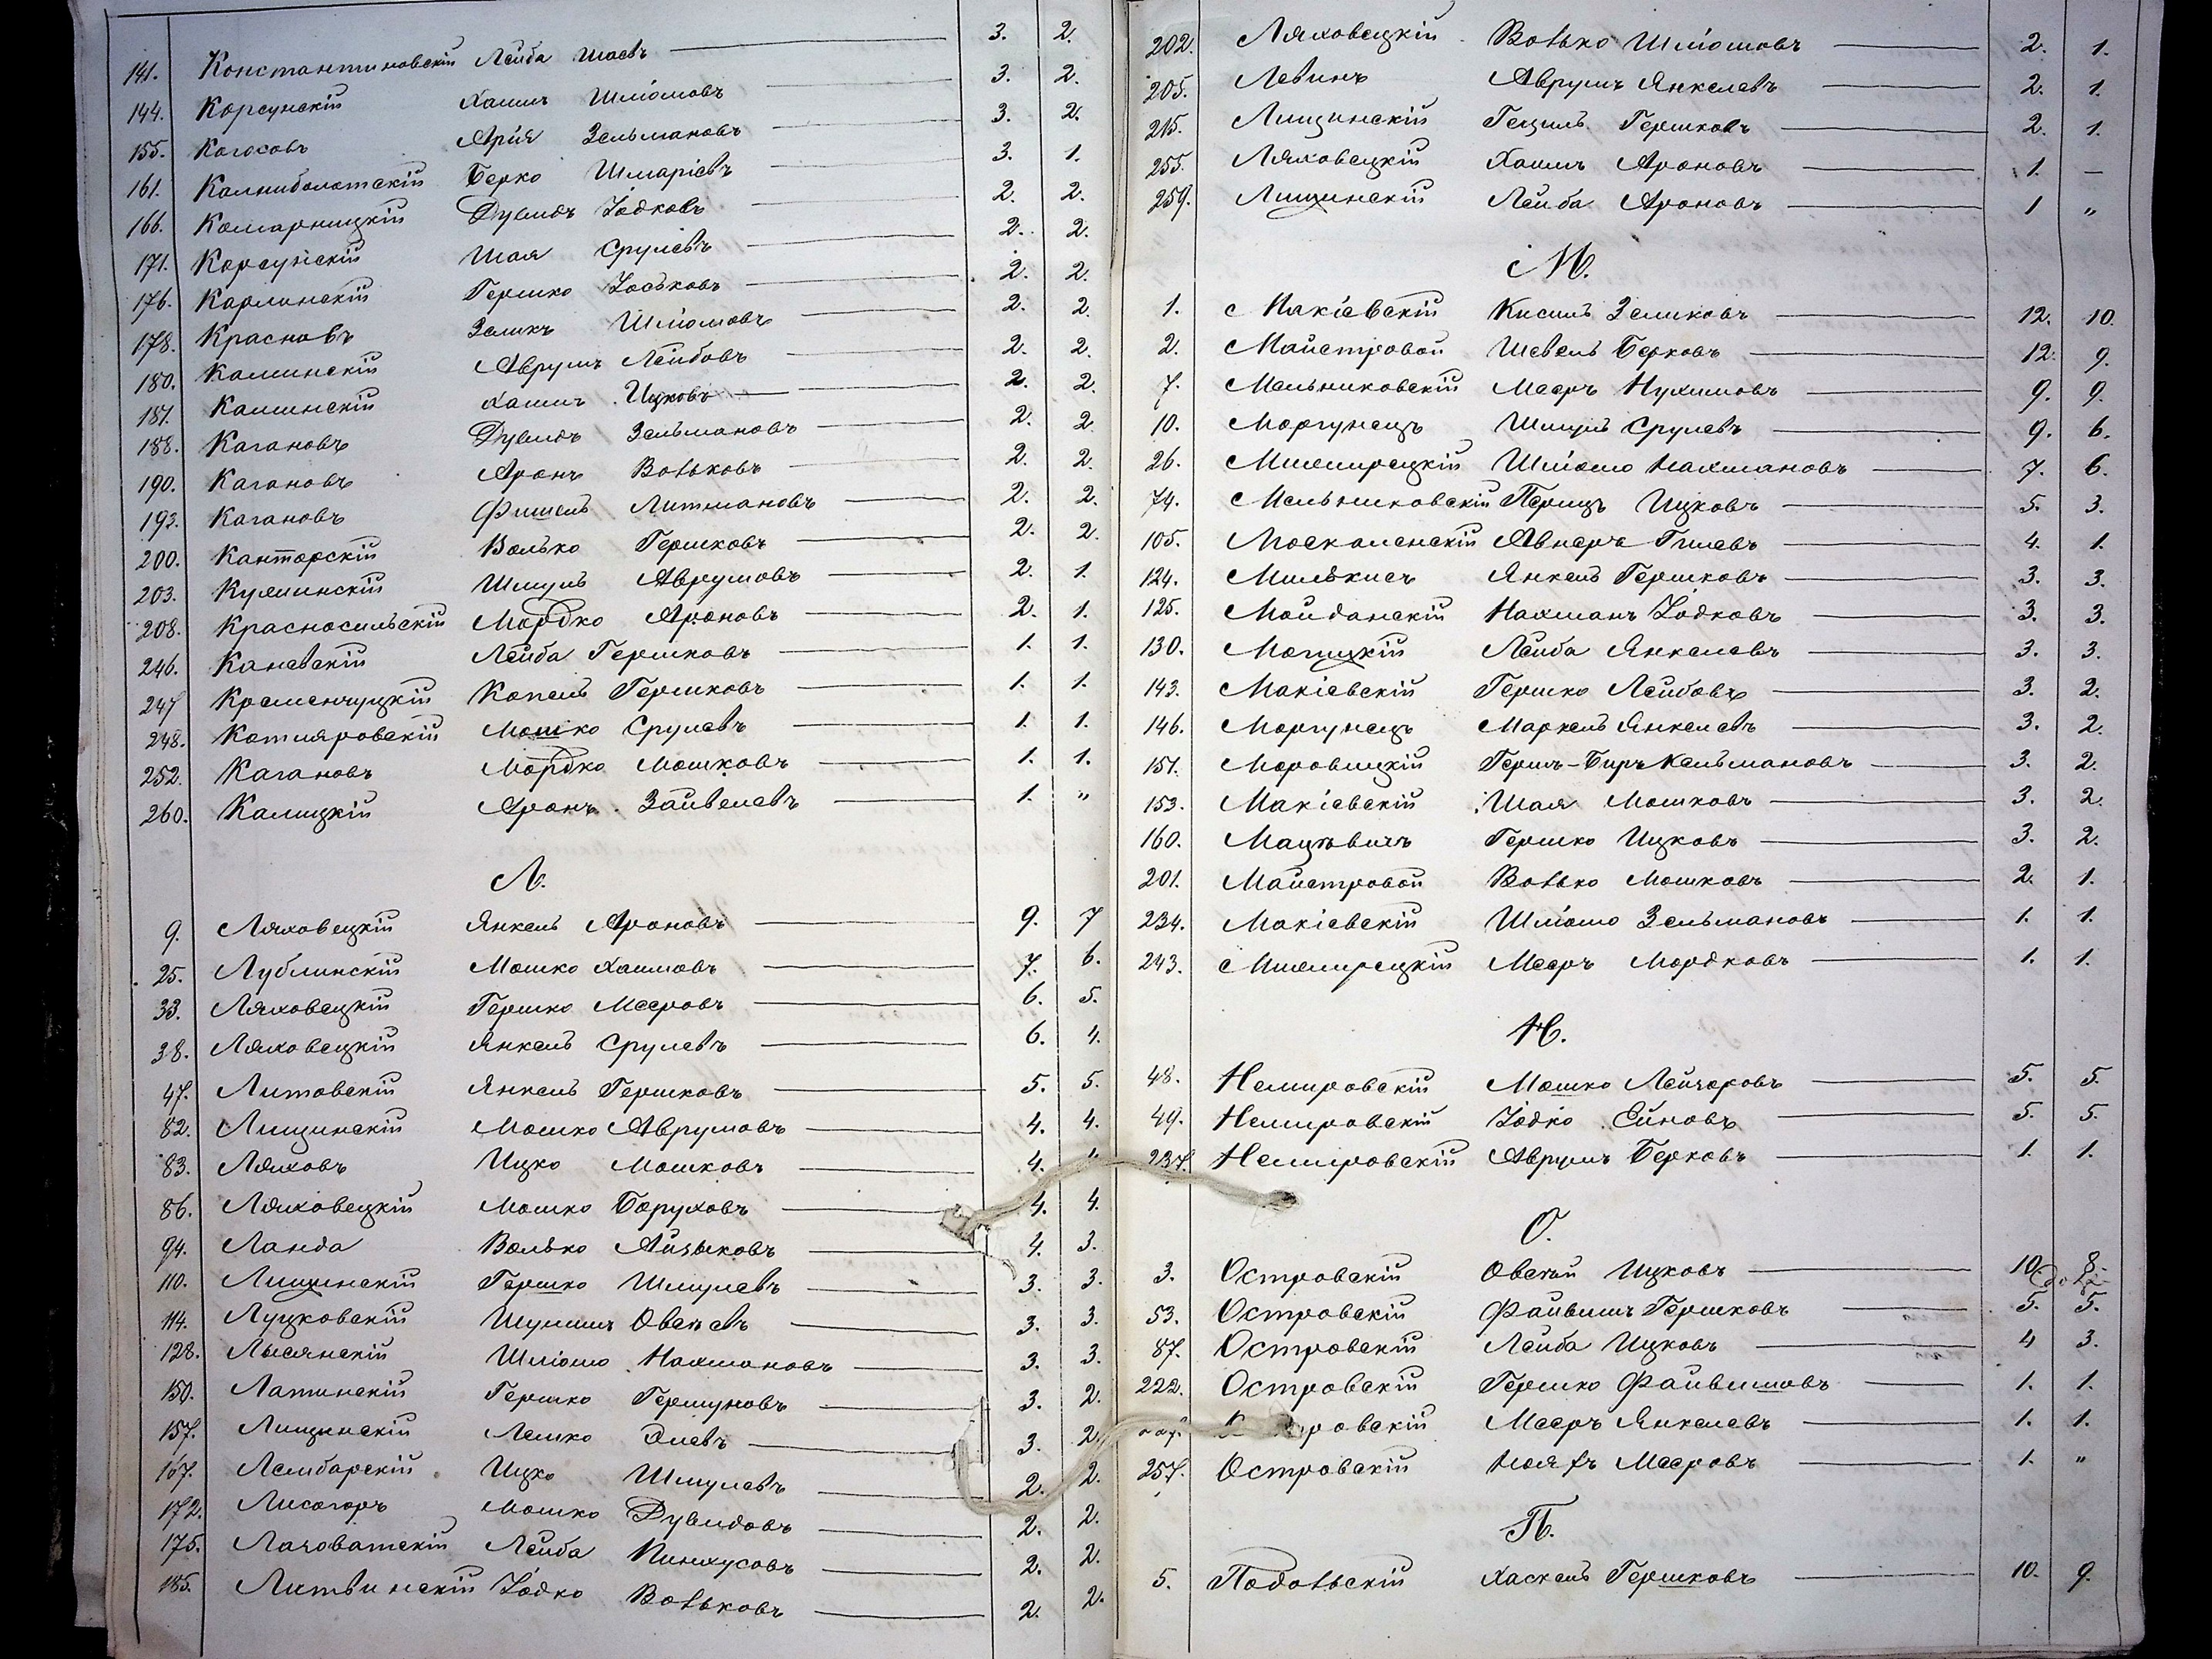 141. Константиновскій Лейба Шаевъ 3. 2.
144. Корсунскій Хаимъ Шліомовъ 3. 2.
155. Арія Зельмановъ 3. 2.
161. Калниболотскій Берко Шмаріевъ 3. 1.
166. Комарницкій Дувидъ Іодковъ 2. 2.
171. Корсунскій Шая Срулевъ 2. 2.
176. Карлинскій Гершко Іоськовъ 2. 2.
178. Красновъ Зеликъ Шліомовъ 2. 2.
180. Каминскій Аврумъ Лейбовъ 2. 2.
187. Каминскій Хаимъ Ицковъ 2. 2.
188. Кагановъ Дувидъ Зельмановъ 2. 2
190. Кагановъ Аронъ Вольковъ 2. 2.
193. Кагановъ Фишель Литмановъ 2. 2.
200. Канторскій Волько Гершковъ 2. 2.
203. Шмуль Аврумовъ 2. 1.
208. Красносильскій Мордко Ароновъ 2. 1.
246. Каневскій Лейба Гершковъ 1. 1.
247 Кременчуцкій Копель Гершковъ 1. 1.
248. Котляровскій Мошко Срулевъ 1. 1.
252. Кагановъ Мордко Мошковъ 1. 1.
260. Калицкій Аронъ Зайвелевъ 1. "
Л.
9. Ляховецкій Янкель Ароновъ 9. 7
25. Лублинскій Мошко Хаимовъ 7. 6.
33. Ляховецкій Гершко Мееровъ 6. 5.
38. Ляховецкій Янкель Срулевъ 6. 4.
47. Литовскій Янкель Гершковъ 5. 5.
82. Лищинскій Мошко Аврумовъ 4. 4.
83. Ляховъ Ицко Мошковъ 4.
86. Ляховецкій Мошко Боруховъ 4. 4.
94. Ланда Волько Айзыковъ 4. 3.
110. Лищинскій Гершко Шмулевъ 3. 3.
114. Луцковскій Шулимъ Овсѣевъ 3. 3.
128. Лысянскій Шліомо Нахмановъ 3. 3.
150. Латинскій Гершко Гершуновъ 3. 2.
157. Лищинскій Лемко Элевъ 3. 2.
167. Лембарскій Ицко Шмулевъ 2. 2.
172. Лисогоръ Мошко Дувидовъ 2. 2.
175. Лазоватскій Лейба Пинхусовъ 2. 2.
185. Литвинскій Іодко Вольковъ 2. 2.
202. Ляховецкій Волько Шліомовъ 2. 1.
205. Левинъ Аврумъ Янкелевъ 2. 1.
215. Лищинскій Гецель Гершковъ 2. 1.
255. Ляховецкій Хаимъ Ароновъ 1. —
259. Лищинскій Лейба Ароновъ 1 "
М.
1. Макіевскій Кисиль Зеликовъ 12. 10.
2. Майстровой Шевель Берковъ 12. 9.
7. Мельниковскій Мееръ Нухимовъ 9. 9.
10. Моргунецъ Шмуль Срулевъ 9. 6.
26. Межирецкій Шліомо Нахмановъ 7. 6.
74. Мельниковскій Перецъ Ицковъ 5. 3.
105. Москаленскій Авнеръ Гилевъ 4. 1.
124. Милькисъ Янкель Гершковъ 3. 3.
125. Майданскій Нахманъ Іодковъ 3. 3.
130. Лейба Янкелевъ 3. 3.
143. Макіевскій Гершко Лейбовъ 3. 2.
146. Моргунецъ Маркель Янкелевъ 3. 2.
151. Моровицкій Гершъ-Беръ Кельмановъ 3. 2.
153. Макіевскій Шая Мошковъ 3. 2.
160. Мацѣвичъ Гершко Ицковъ 3. 2.
201. Майстровой Волько Мошковъ 2. 1.
234. Макіевскій Шліомо Зельмановъ 1. 1.
243. Межирецкій Мееръ Мордковъ 1. 1.
Н.
48. Немировскій Мошко Лейзоровъ 5. 5.
49. Немировскій Іодко Ейновъ 5. 5.
237. Немировскій Аврумъ Берковъ 1. 1.
О.
3. Островскій Овсѣй Ицковъ 10. 8.
53. Островскій Файвишъ Гершковъ 5. 5.
87. Островскій Лейба Ицковъ 4 3.
222. Островскій Гершко Файвишовъ 1. 1.
Мееръ Янкелевъ 1. 1.
257. Островскій Мееровъ 1. "
П.
5. Подольскій Хаскель Гершковъ 10. 9.